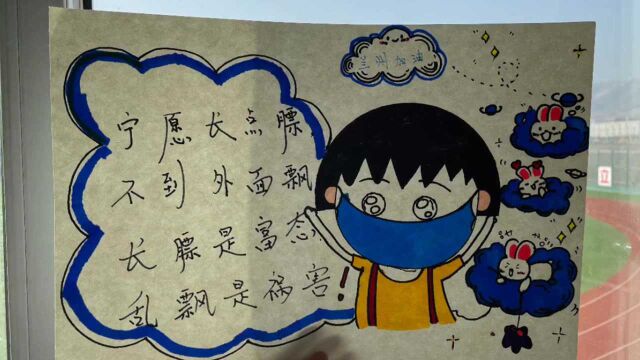 兰州加油
宁愿长点膘
不到外面飘
长膘是富态
乱飘是祸害!
立